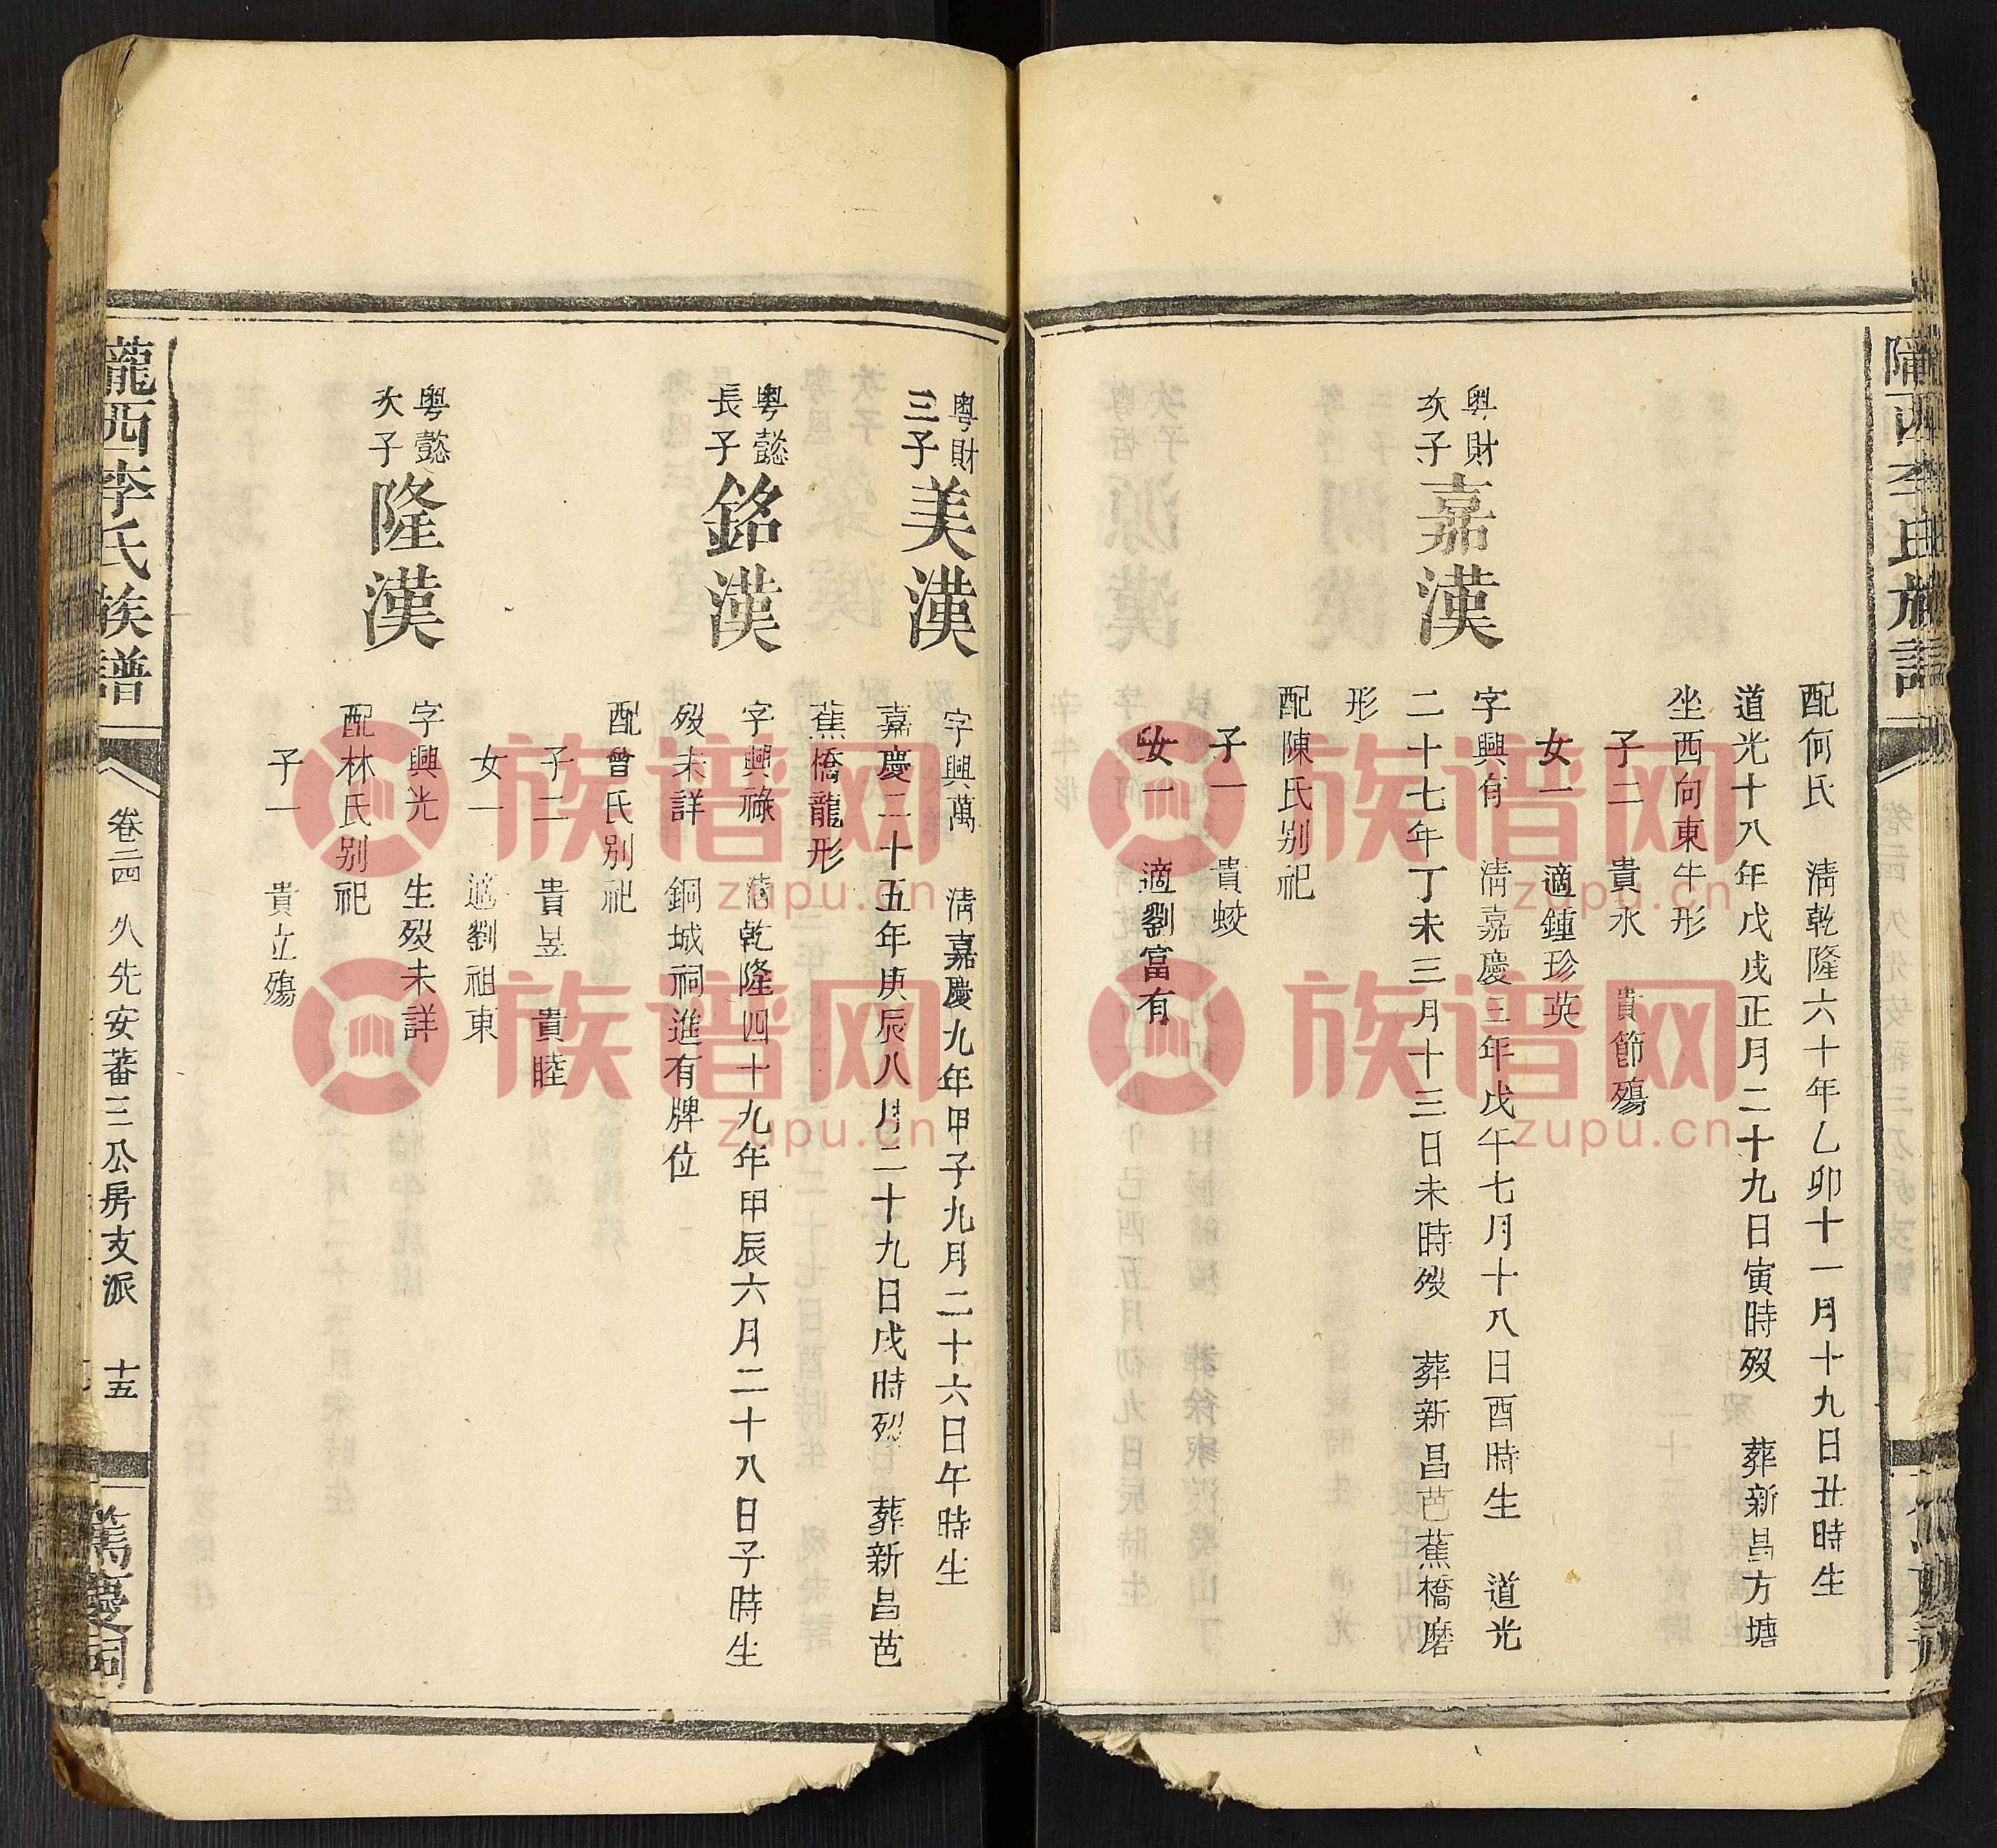 隴西李氏族譜
配何氏　清乾隆六十年乙卯十一月十九日丑時生
道光十八年戊戌正月二十九日寅時歿　葬新昌方塘
坐西向東牛形
子二　貴水　貴節殤
女一　適鍾珍英
粵財
次子
嘉漢
字興有　清嘉慶三年戊午七月十八日酉時生　道光
二十七年丁未三月十三日未時歿　葬新昌芭蕉橋磨
形
配陳氏別祀
子一　貴蛟
女一　適劉富有
粵財
三子
美漢
字興萬　清嘉慶九年甲子九月二十六日午時生
嘉慶二十五年庚辰八月二十九日戌時歿　葬新昌芭
蕉橋龍形
粵懿
長子
銘漢
字興祿　清乾隆四十九年甲辰六月二十八日子時生
歿未詳　銅城祠進有牌位
配曾氏別祀
子二　貴昱　貴睦
女一　適劉祖東
粵懿
次子
隆漢
字興光　生歿未詳
配林氏別祀
子一　貴立殤
隴西李氏族譜
卷二四　久先安蕃三公房支派　十五
篤慶祠
族谱网
zupu.cn
族谱网
zupu.cn
族谱网
zupu.cn
族谱网
zupu.cn